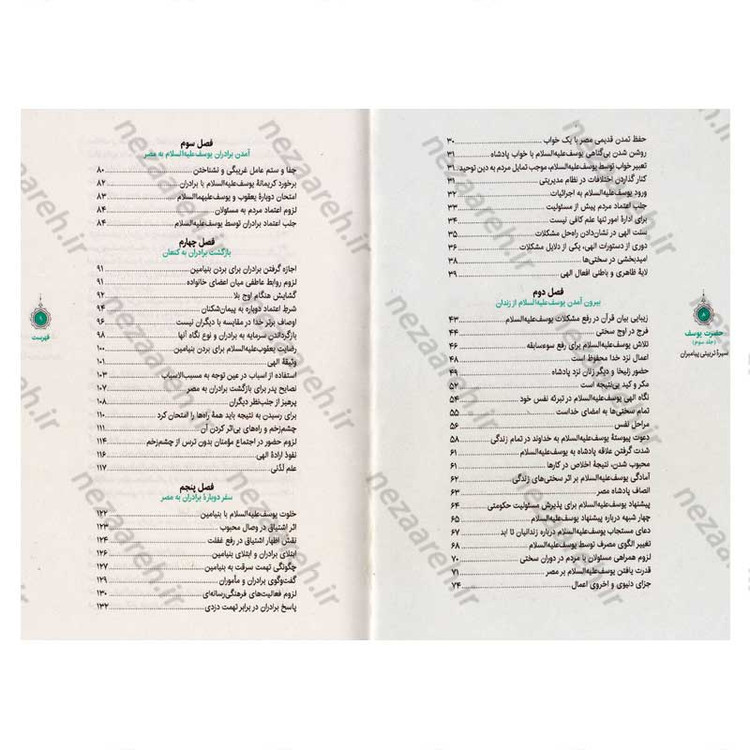 حفظ تمدن قدیمی مصر با یک خواب ۳۰
روشن شدن بی‌گناهی یوسف‌علیه‌السلام با خواب پادشاه ۳۱
تعبیر خواب توسط یوسف‌علیه‌السلام، موجب تمایل مردم به دین توحید ۳۱
کنار گذاردن اختلافات در نظام مدیریتی ۳۱
ورود یوسف‌علیه‌السلام به اجرائیات ۳۲
جلب اعتماد مردم پیش از مسئولیت ۳۳
برای ادارهٔ امور تنها علم کافی نیست ۳۴
سنت الهی در نشان‌دادن راه‌حل مشکلات ۳۵
دوری از دستورات الهی، یکی از دلایل مشکلات ۳۶
امیدبخشی در سختی‌ها ۳۸
لایهٔ ظاهری و باطنی افعال الهی ۳۹
فصل دوم
بیرون آمدن یوسف‌علیه‌السلام از زندان
زیبایی بیان قرآن در رفع مشکلات یوسف‌علیه‌السلام ۴۳
فرج در اوج سختی ۴۴
تلاش یوسف‌علیه‌السلام برای رفع سوءسابقه ۴۶
اعمال نزد خدا محفوظ است ۴۸
حضور زلیخا و دیگر زنان نزد پادشاه ۴۹
مکر و کید بی‌نتیجه است ۵۲
نگاه الهی یوسف‌علیه‌السلام در تبرئه نفس خود ۵۴
تمام سختی‌ها به امضای خداست ۵۵
مراحل نفس ۵۶
دعوت پیوستهٔ یوسف‌علیه‌السلام به خداوند در تمام زندگی ۵۸
شدت گرفتن علاقه پادشاه به یوسف‌علیه‌السلام ۶۱
محبوب شدن، نتیجهٔ اخلاص در کارها ۶۱
آمادگی یوسف‌علیه‌السلام بر اثر سختی‌های زندگی ۶۲
انصاف پادشاه مصر ۶۳
پیشنهاد یوسف‌علیه‌السلام برای پذیرش مسئولیت حکومتی ۶۴
چهار شبهه درباره پیشنهاد یوسف‌علیه‌السلام ۶۵
دعای مستجاب یوسف‌علیه‌السلام درباره زندانیان تا ابد ۶۷
تغییر الگوی مصرف توسط یوسف‌علیه‌السلام ۶۸
لزوم همراهی مسئولان با مردم در دوران سختی ۷۰
قدرت یافتن یوسف‌علیه‌السلام بر مصر ۷۱
جزای دنیوی و اخروی اعمال ۷۴
۸
حضرت یوسف
(جلد سوم)
سیرهٔ تربیتی پیامبران
فصل سوم
آمدن برادران یوسف‌علیه‌السلام به مصر
جفا و ستم عامل غریبگی و نشناختن ۸۰
برخورد کریمانهٔ یوسف‌علیه‌السلام با برادران ۸۲
امتحان دوبارهٔ یعقوب و یوسف‌علیهماالسلام ۸۳
لزوم اعتماد مردم به مسئولان ۸۴
جلب اعتماد برادران توسط یوسف‌علیه‌السلام ۸۴
فصل چهارم
بازگشت برادران به کنعان
اجازه گرفتن برادران برای بردن بنیامین ۹۱
لزوم روابط عاطفی میان اعضای خانواده ۹۱
گشایش هنگام اوج بلا ۹۲
شرایط اعتماد دوباره به پیمان‌شکنان ۹۴
اوصاف برتر خدا در مقایسه با دیگران نیست ۹۶
بازگرداندن سرمایه به برادران و نوع نگاه آنها ۹۸
رضایت یعقوب‌علیه‌السلام برای بردن بنیامین ۱۰۰
وثیقهٔ الهی ۱۰۱
استفاده از اسباب در عین توجه به مسبب‌الاسباب ۱۰۳
نصایح پدر برای بازگشت برادران به مصر ۱۰۷
پرهیز از جلب‌نظر دیگران ۱۰۸
برای رسیدن به نتیجه باید همهٔ راه‌ها را امتحان کرد ۱۱۰
چشم‌زخم و راه‌های بی‌اثر کردن آن ۱۱۱
لزوم حضور در اجتماع مؤمنان بدون ترس از چشم‌زخم ۱۱۴
نفوذ ارادهٔ الهی ۱۱۶
علم لدُنی ۱۱۷
فصل پنجم
سفر دوبارهٔ برادران به مصر
خلوت یوسف‌علیه‌السلام با بنیامین ۱۲۲
اثر اشتیاق در وصال محبوب ۱۲۳
نقش اظهار اشتیاق در رفع غفلت ۱۲۴
ابتلای برادران و ابتلای بنیامین ۱۲۶
چگونگی تهمت سرقت به بنیامین ۱۲۷
گفت‌وگوی برادران و مأموران ۱۲۹
لزوم فعالیت‌های فرهنگی‌رسانه‌ای ۱۳۰
پاسخ برادران در برابر تهمت دزدی ۱۳۲
۹
فهرست
nezaareh.ir